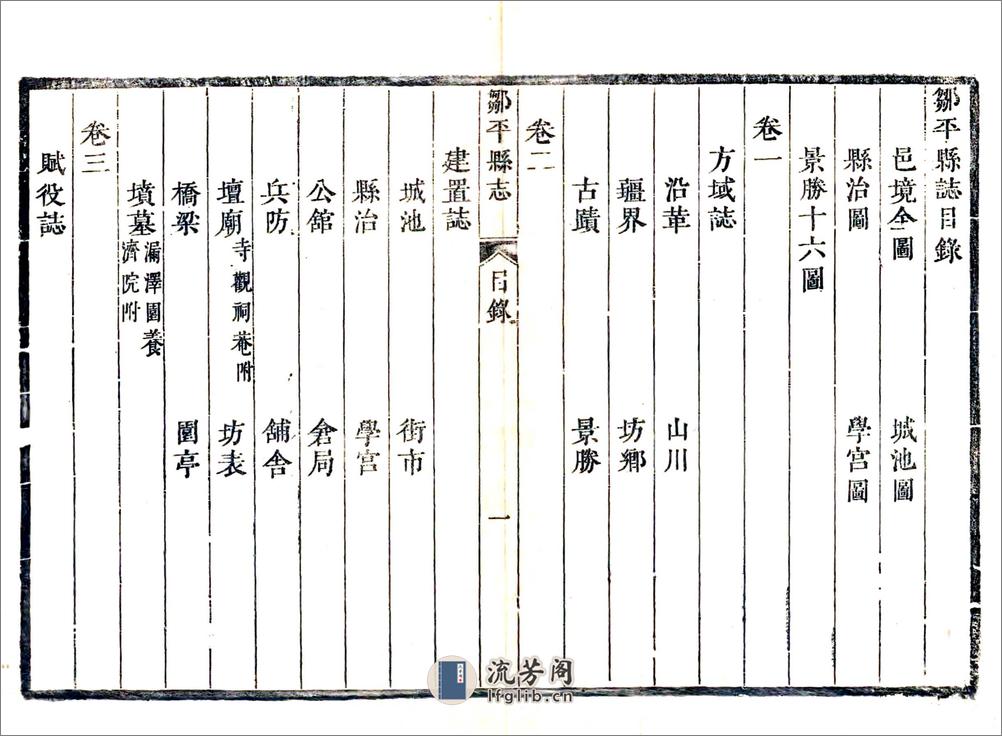 鄒平縣誌目錄
邑境全圖 城池圖
縣治圖 學宮圖
景勝十六圖
卷一
方域誌
沿革 山川
疆界 坊鄉
古蹟 景勝
卷二
鄒平縣志 目錄 一
建置誌
城池 街市
縣治 學宮
公館 倉局
兵防 舖舍
壇廟 寺觀祠菴附 坊表
橋梁 園亭
墳墓 漏澤園養
濟院附
卷三
賦役誌
流芳阁
lfglib.cn